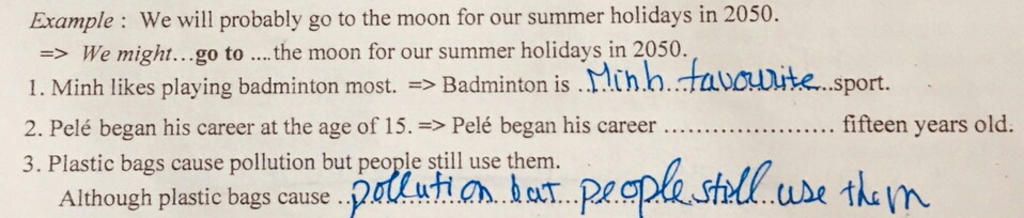 Example : We will probably go to the moon for our summer holidays in 2050.
=> We might...go to ....the moon for our summer holidays in 2050.
1. Minh likes playing badminton most. => Badminton is ..Minh..favourite..sport.
2. Pelé began his career at the age of 15. => Pelé began his career ...................... fifteen years old.
3. Plastic bags cause pollution but people still use them.
Although plastic bags cause ..pollution but people still use them